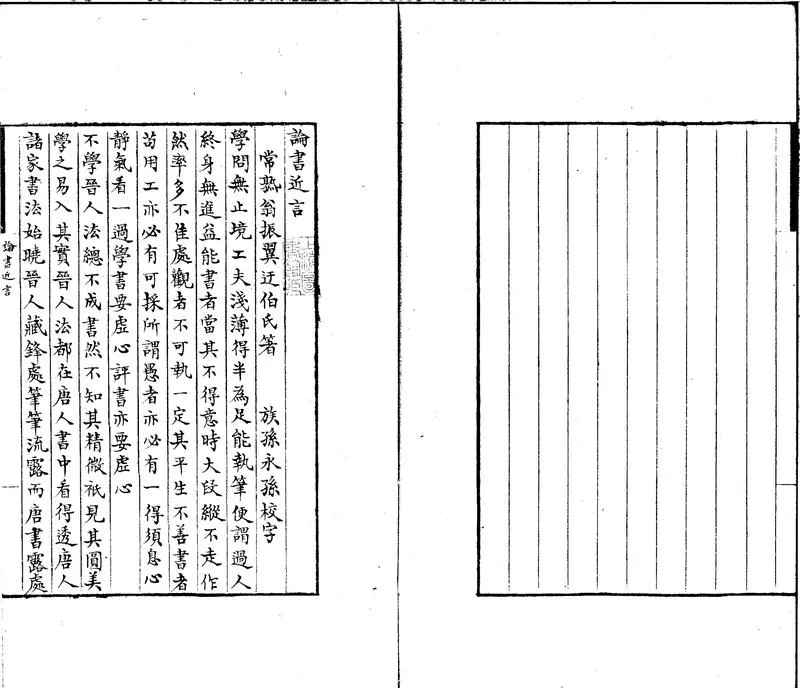 論書近言
常熟翁振翼迂伯氏著　族孫永孫校字
學問無止境工夫淺薄得半為足能執筆便謂過人
終身無進益能書者當其不得意時大段縱不走作
然率多不佳處觀者不可執一定其平生不善書者
苟用工亦必有可採所謂愚者亦必有一得須息心
靜氣看一過學書要虛心評書亦要虛心
不學晉人法總不成書然不知其精微祇見其圓美
學之易入其實晉人法都在唐人書中看得透唐人
諸家書法始曉晉人藏鋒處筆筆流露而唐書露處
論書近言